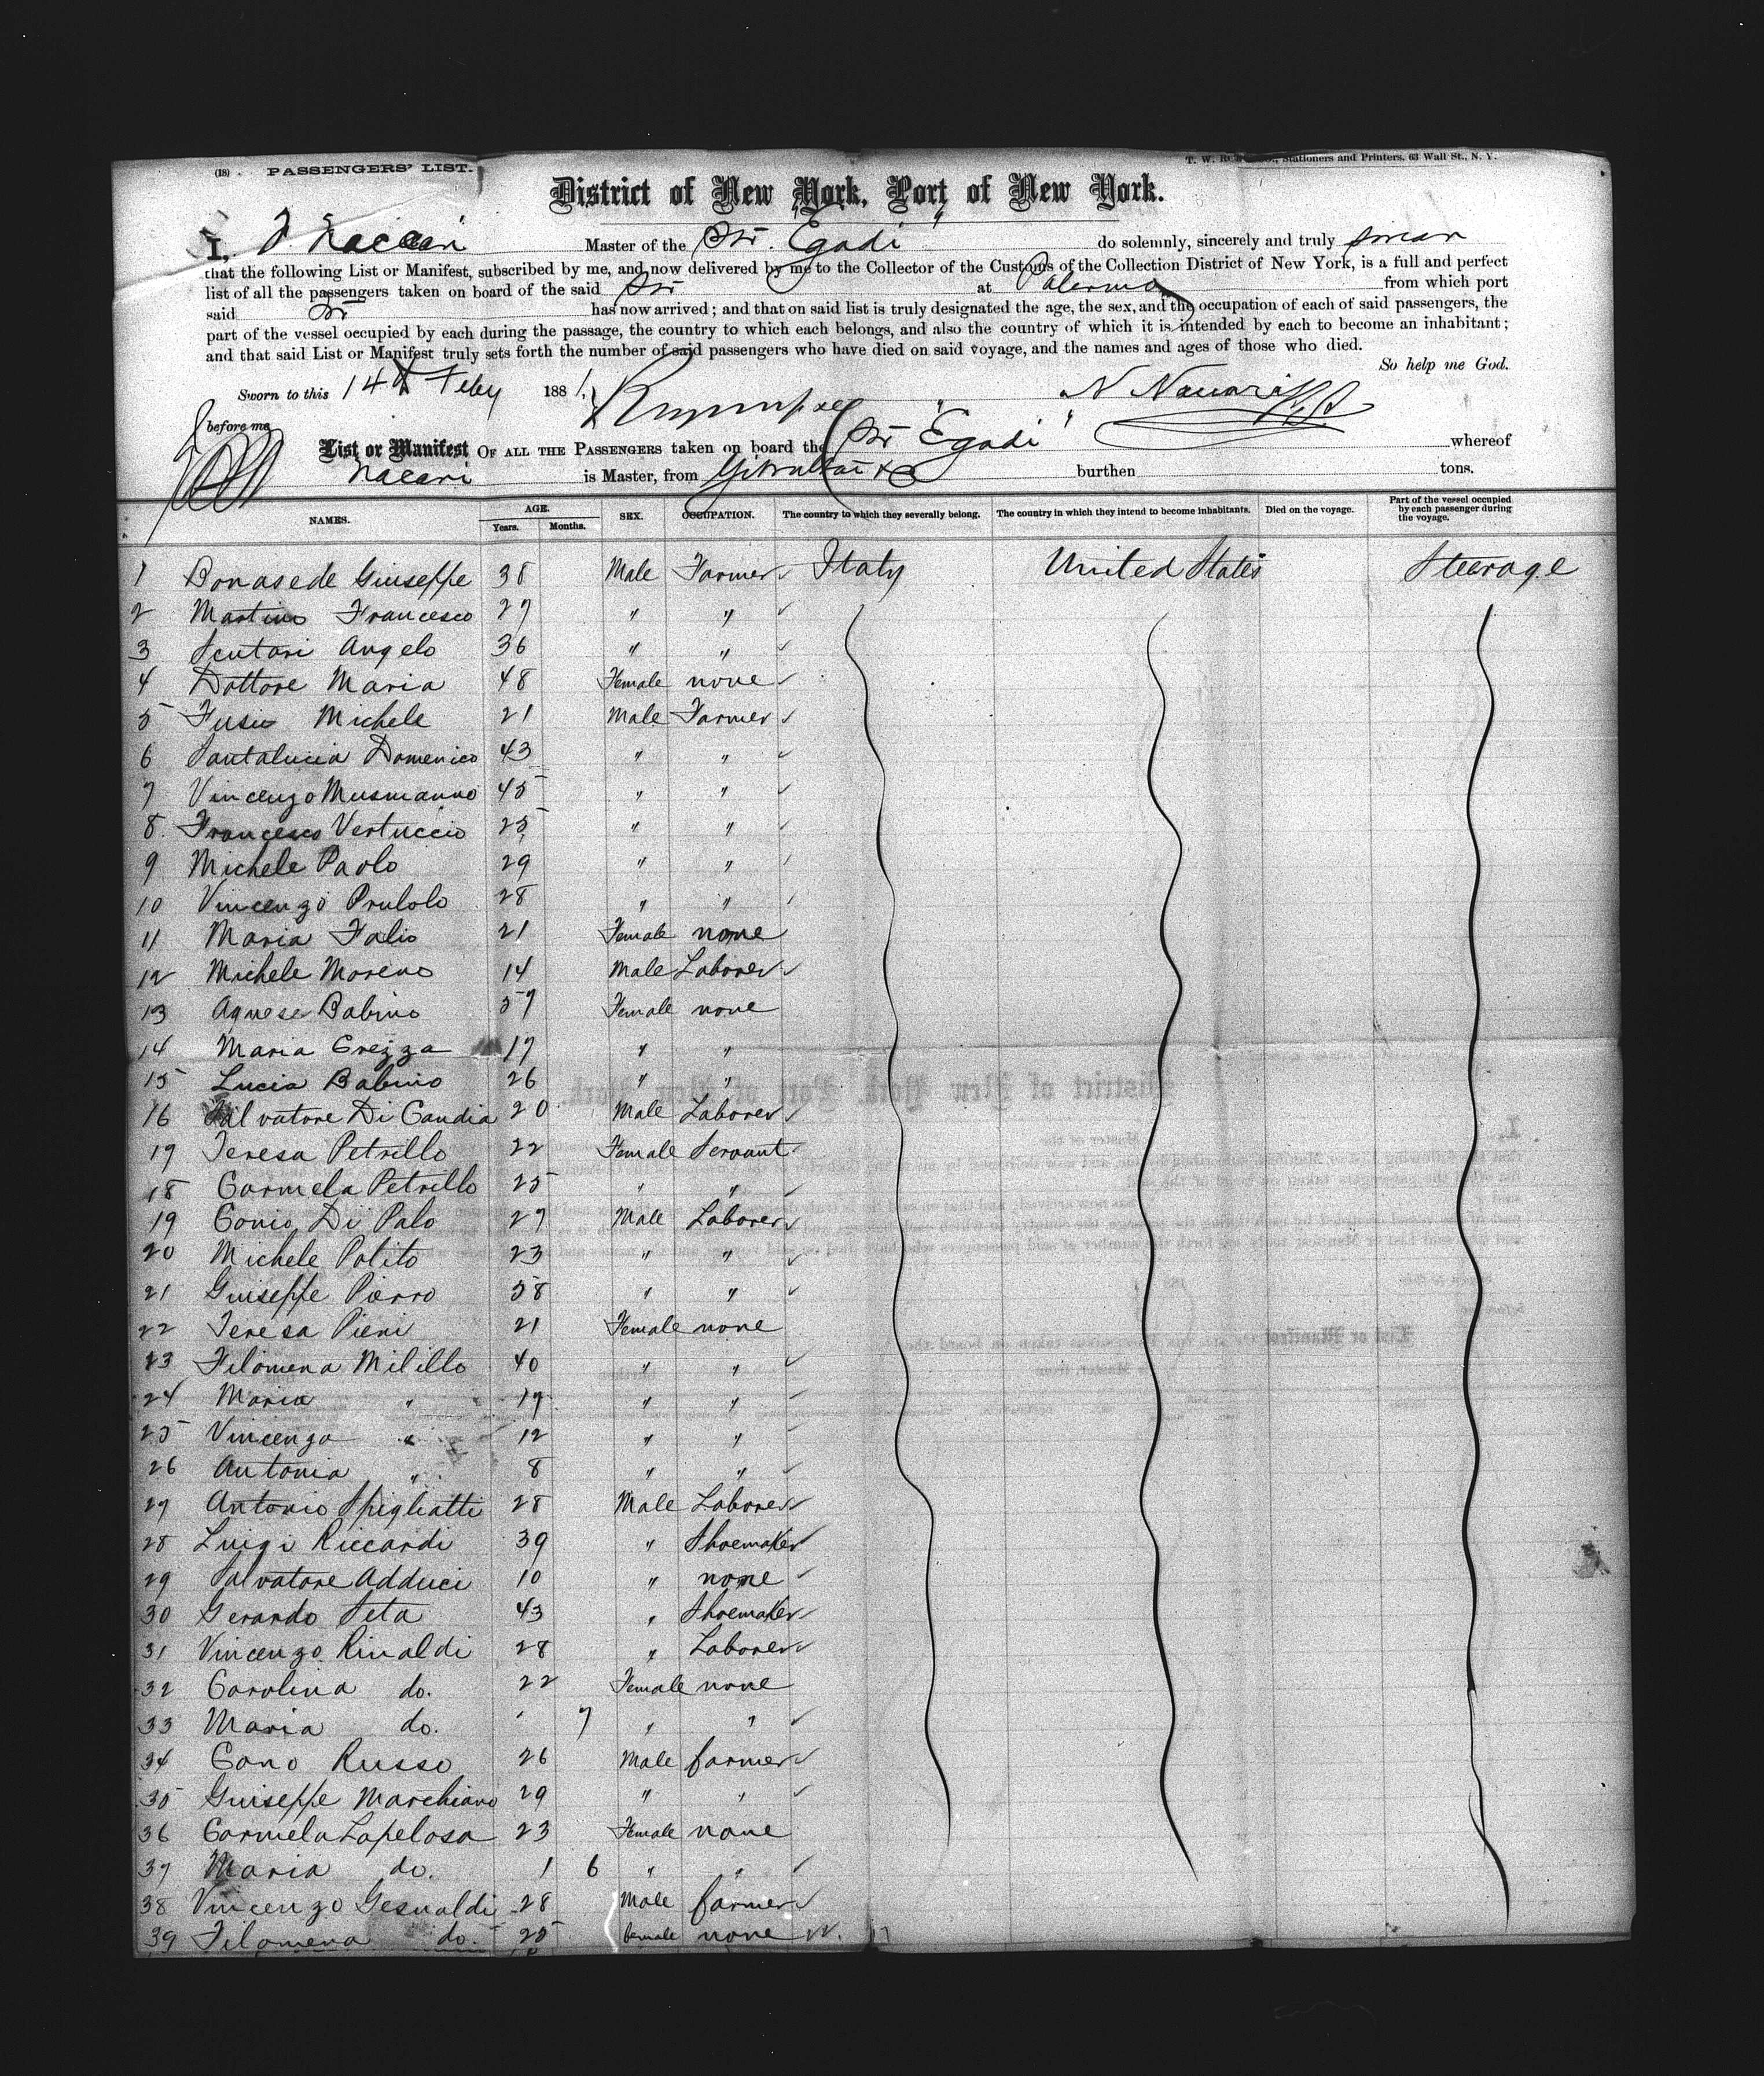 (18) PASSENGERS' LIST. T. W. Stationers and Printers, 63 Wall St., N. Y.
District of New York, Port of New York.
I, Master of the Str. "Egadi" do solemnly, sincerely and truly swear
that the following List or Manifest, subscribed by me, and now delivered by me to the Collector of the Customs of the Collection District of New York, is a full and perfect
list of all the passengers taken on board of the said Str at Palermo from which port
said Str has now arrived; and that on said list is truly designated the age, the sex, and the occupation of each of said passengers, the
part of the vessel occupied by each during the passage, the country to which each belongs, and also the country of which it is intended by each to become an inhabitant;
and that said List or Manifest truly sets forth the number of said passengers who have died on said voyage, and the names and ages of those who died.
So help me God.
Sworn to this 14th Feby 1881,
before me
List or Manifest OF ALL THE PASSENGERS taken on board the Str "Egadi" whereof
is Master, from Gibraltar &c burthen tons.
NAMES. AGE. Years. Months. SEX. OCCUPATION. The country to which they severally belong. The country in which they intend to become inhabitants. Died on the voyage. Part of the vessel occupied by each passenger during the voyage.
1 Bonasede Giuseppe 38 Male Farmer Italy United States Steerage
2 Martino Francesco 27 " "
3 Scutari Angelo 36 " "
4 Dottore Maria 48 Female none
5 Fusio Michele 21 Male Farmer
6 Santalucia Domenico 43 " "
7 Vincenzo Musmanno 45 " "
8 Francesco Vertuccio 25 " "
9 Michele Paolo 29 " "
10 Vincenzo 28 " "
11 Maria Falio 21 Female none
12 Michele Moreno 14 Male Laborer
13 Agnese Babino 57 Female none
14 Maria Grezza 17 " "
15 Lucia Babino 26 " "
16 Salvatore Di Candia 20 Male Laborer
17 Teresa Petrillo 22 Female Servant
18 Carmela Petrillo 25 " "
19 Conio Di Palo 27 Male Laborer
20 Michele Polito 23 " "
21 Guiseppe Pierro 58 " "
22 Teresa Pieri 21 Female none
23 Filomena Milillo 40 " "
24 Maria " 17 " "
25 Vincenza " 12 " "
26 Antonia " 8 " "
27 Antonio Spigliatti 28 Male Laborer
28 Luigi Riccardi 39 " Shoemaker
29 Salvatore Adduci 10 " none
30 Gerardo Seta 43 " Shoemaker
31 Vincenzo Rinaldi 28 " Laborer
32 Carolina do. 22 Female none
33 Maria do. 7 " "
34 Cono Russo 26 Male farmer
35 Guiseppe Marchiano 29 " "
36 Carmela Lapelosa 23 Female none
37 Maria do. 1 6 " "
38 Vincenzo Gesualdi 28 Male farmer
39 Filomena do. 25 female none